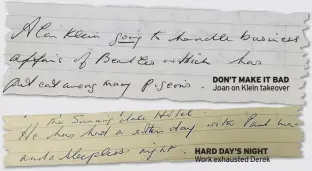 Alan Klein going to handle business
affairs of Beatles which has
put cat among many pigeons.
DON'T MAKE IT BAD
Joan on Klein takeover
Sunningdale Hotel.
He has had a rotten day with Paul
and a sleepless night.
HARD DAY'S NIGHT
Work exhausted Derek